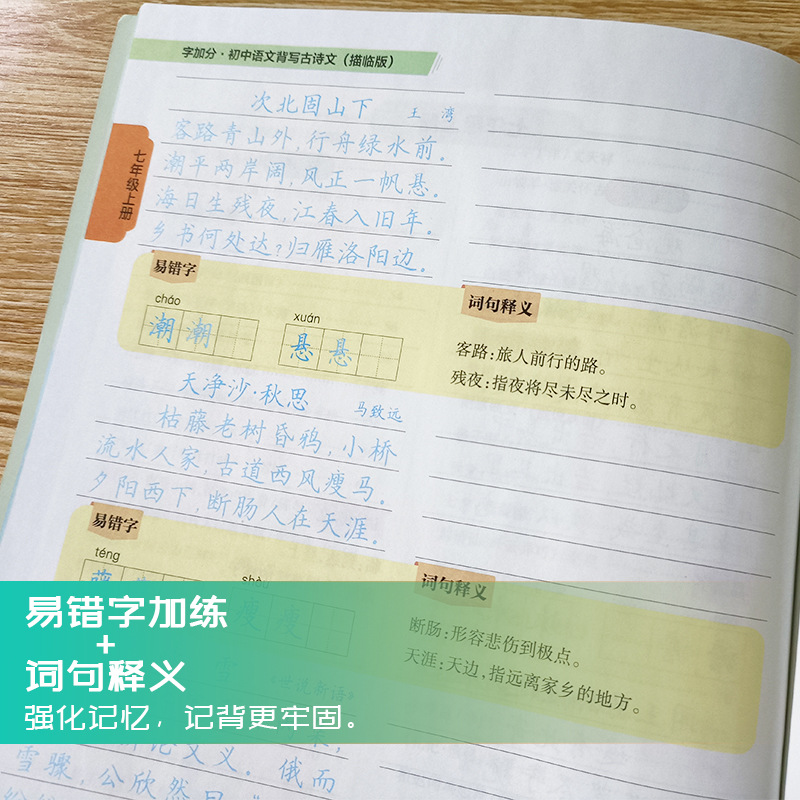 字加分·初中语文背写古诗文（描临版）
七年级上册
次北固山下 王湾
客路青山外，行舟绿水前。
潮平两岸阔，风正一帆悬。
海日生残夜，江春入旧年。
乡书何处达？归雁洛阳边。
易错字
cháo xuán
潮 潮 悬 悬
词句释义
客路：旅人前行的路。
残夜：指夜将尽未尽之时。
天净沙·秋思 马致远
枯藤老树昏鸦，小桥
流水人家，古道西风瘦马。
夕阳西下，断肠人在天涯。
易错字
téng shòu
藤 瘦 瘦
词句释义
断肠：形容悲伤到极点。
天涯：天边，指远离家乡的地方。
易错字加练
+
词句释义
强化记忆，记背更牢固。
《世说新语》
讲论文义。俄而
雪骤，公欣然曰